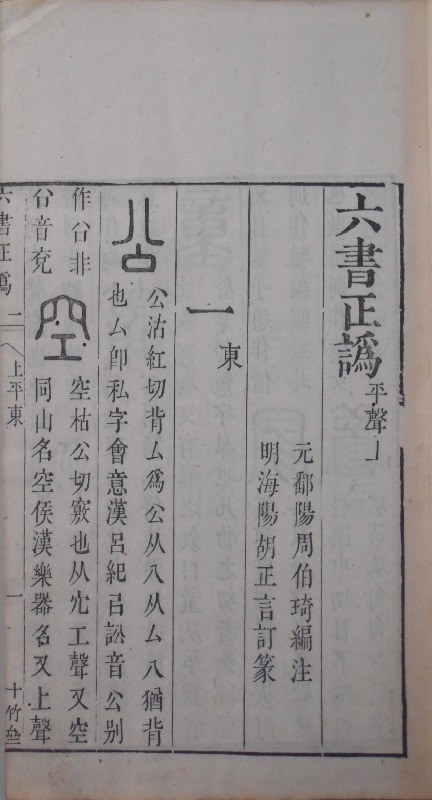 六書正譌 平聲上
元鄱陽周伯琦編注
明海陽胡正言訂篆
一東
公 公沽紅切背厶爲公从八从厶八猶背
也厶卽私字會意漢呂紀㠯訟音公别
作㕣非 空 空枯公切竅也从穴工聲又空
㕣音兖 同山名空侯漢樂器名又上聲
六書正譌 二 上平東 一 十竹齋